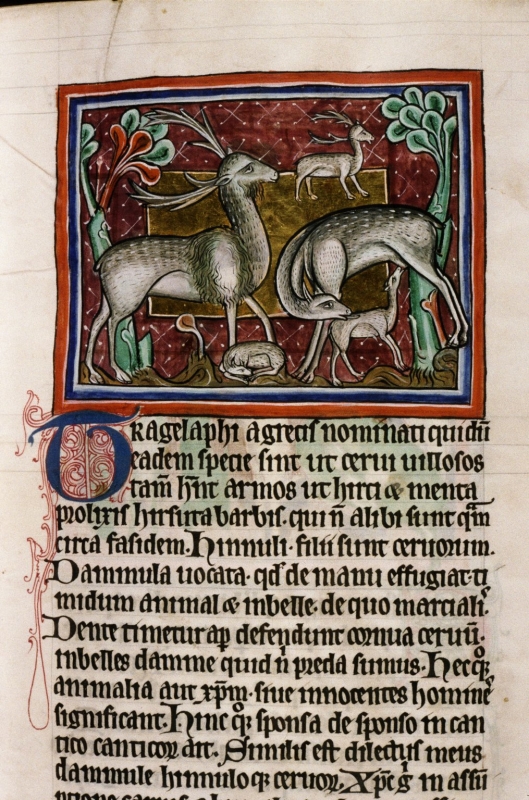 Tragelaphi a grecis nominati qui dũ
eadem specie sint ut cerui uillosos
tam̃ hñt armos ut hirci & menta
prolixis hirsuta barbis. qui ñ alibi sunt q̃m
circa fasidem. Hinnuli. filii sunt ceruorum.
Dammula uocata. qd' de manu effugiat. ti
midum animal & inbelle. de quo martial'.
Dente timetur ap̃ defendunt cornua ceruũ.
inbelles damme quid ñ preda sumus. Hec q̉
animalia aut xp̃m. siue innocentes homine
significant. Hinc q̉ sponsa de sponso in can
tico canticoꝝ ait. Similis est dilectus meus
dammule hinnuloq; ceruoꝝ. Xp̃c g̉ in assũ